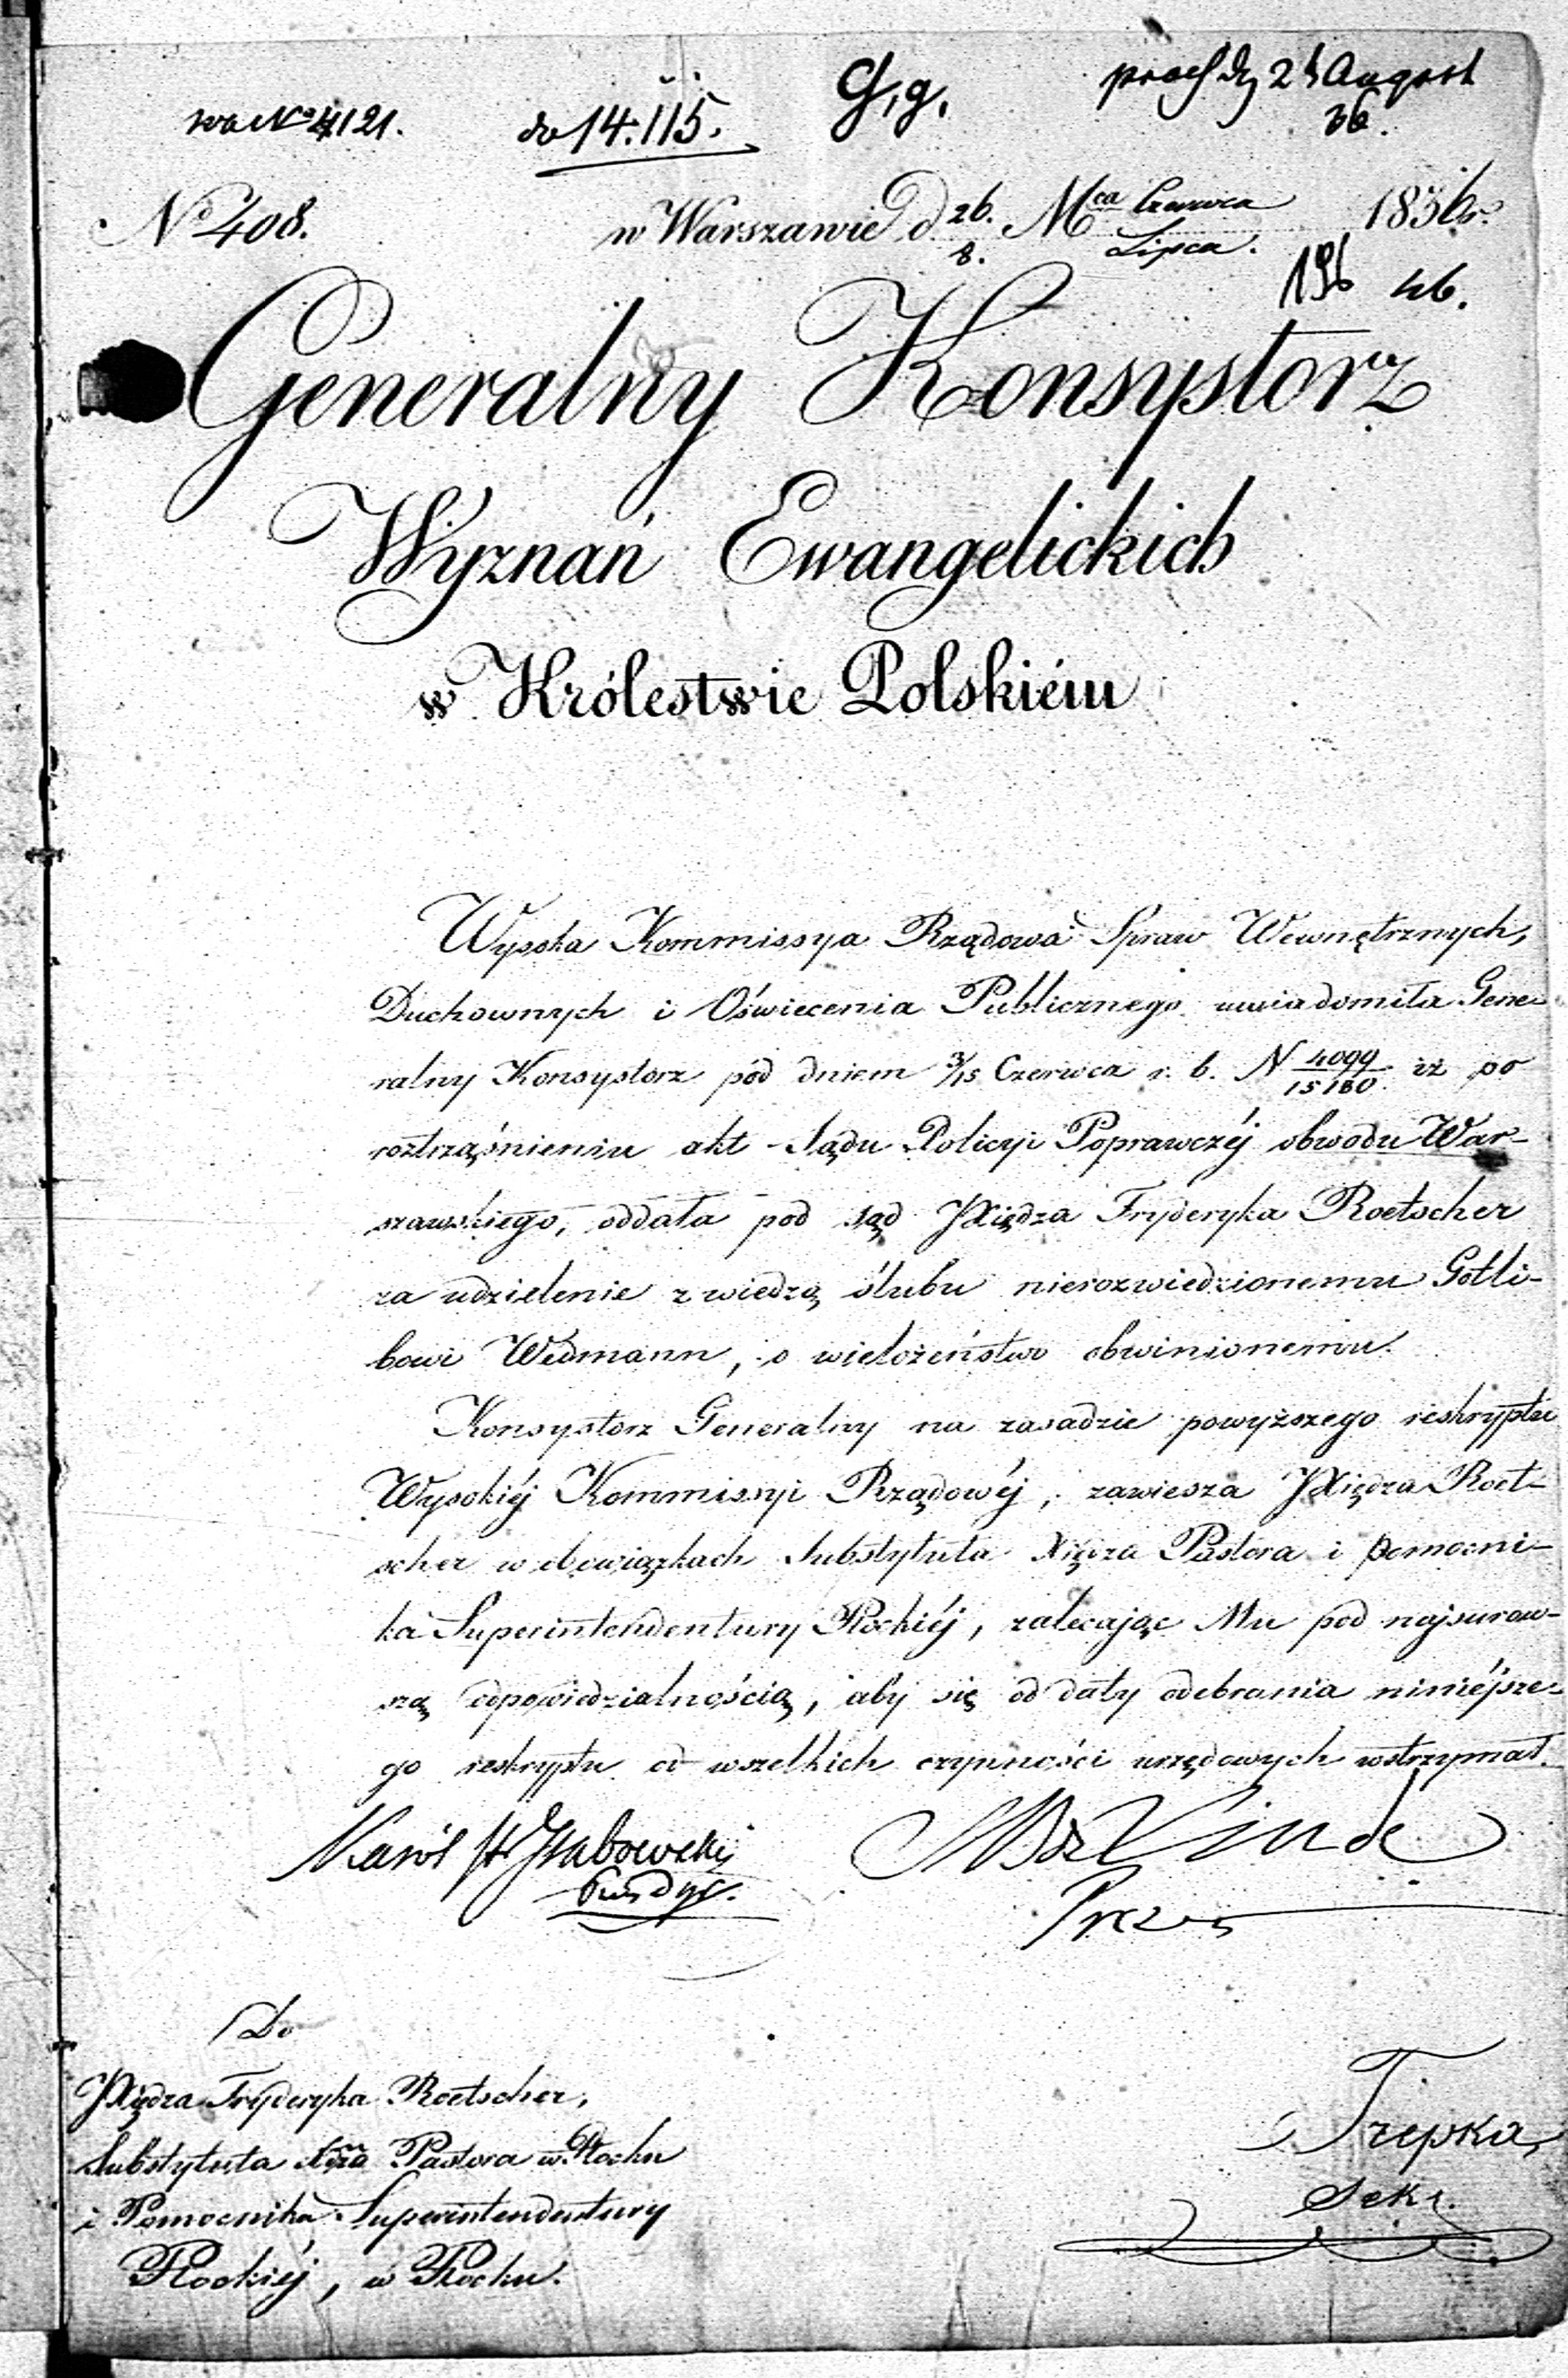 do 14.115.
G,g.
August
36.
No 408.
w Warszawie d. 26. Mca Czerwca 1836 r.
8. Lipca.
196 46.
Generalny Konsystorz
Wyznań Ewangelickich
w Królestwie Polskiém
Wysoka Kommissya Rządowa Spraw Wewnętrznych,
Duchownych i Oświecenia Publicznego uwiadomiła Gene-
ralny Konsystorz pód dniem 3/15 Czerwca r. b. N 4099/15180 iż po
roztrząśnieniu akt Sądu Policyi Poprawczéj obwodu War-
szawskiego, oddała pod sąd JXiędza Fryderyka Roetscher
za udzielenie z wiedzą ślubu nierozwiedzionemu Gotli-
bowi Wedmann, o wielożeństwo obwinionemu.
Konsystorz Generalny na zasadzie powyższego reskryptu
Wysokiéj Kommissyi Rządowéj, zawiesza JXiędza Roet-
scher w obowiązkach Substytuta Xiędza Pastora i pomocni-
ka Superintendentury Płockiéj, zalecając Mu pod najsurow-
szą odpowiedzialnością, aby się od daty odebrania niniéjsze-
go reskryptu od wszelkich czynności urzędowych wstrzymał.
Karól
Linde
Prezes
Do
JXiędza Fryderyka Roetscher,
Substytuta Pastora w Płocku
i Pomocnika Superintendentury
Płockiéj, w Płocku.
Trepka
Sekr.